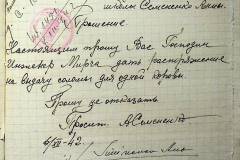 школы Семененко Анны.
Прошение
Настоящим прошу Вас Господин
дать распоряжение
на выдачу соломы для одной коровы.
Прошу не отказать
Просит. АСемененко
6/XII-42.